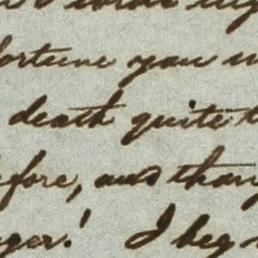 fortune you
death quite
efore, and than
ger! I beg